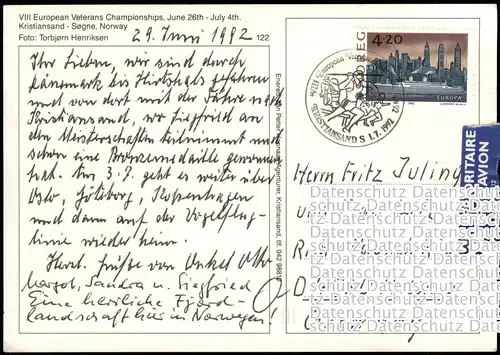 VIII European Veterans Championships, June 26th - July 4th.
Kristiansand - Søgne, Norway
Foto: Torbjørn Henriksen
122
29. Juni 1992
Ihr Lieben, wir sind durch
Dänemark bis Hirtshals gefahren
und von dort mit der Fähre nach
Kristiansand, wo Siegfried an
den Meisterschaften teilnimmt und
schon eine Bronzemedaille gewonnen
hat. Am 3.7. geht es weiter über
Oslo, Göteborg, Kopenhagen
und dann auf der Vogelflug-
linie wieder heim.
Herzl. Grüße von Onkel Otto
Margot, Sandra u. Siegfried
Eine herrliche Fjord-
landschaft hier in Norwegen!
Enerett:
Kristiansand. tlf. 042
NOREG
4·20
EUROPA
VIIIth European Veterans
KRISTIANSAND S 1.7.1992
PRIORITAIRE
PAR AVION
Herrn Fritz Juling
Datenschutz Datenschutz
Datenschutz Datenschutz
Datenschutz Datenschutz
Datenschutz Datenschutz
Datenschutz Datenschutz
Datenschutz Datenschutz
Datenschutz Datenschutz